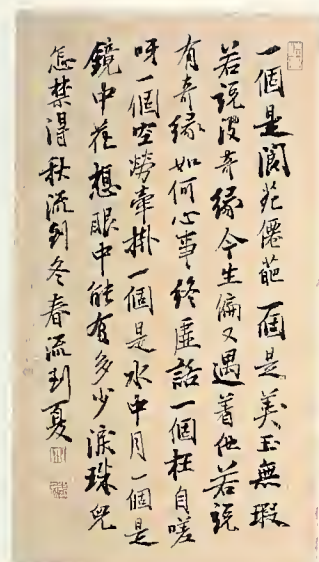 一個是閬苑僊葩一個是美玉無瑕
若説沒奇緣今生偏又遇着他若説
有奇緣如何心事終虛話一個枉自嗟
呀一個空勞牽掛一個是水中月一個是
鏡中花想眼中能有多少淚珠兒
怎禁得秋流到冬春流到夏